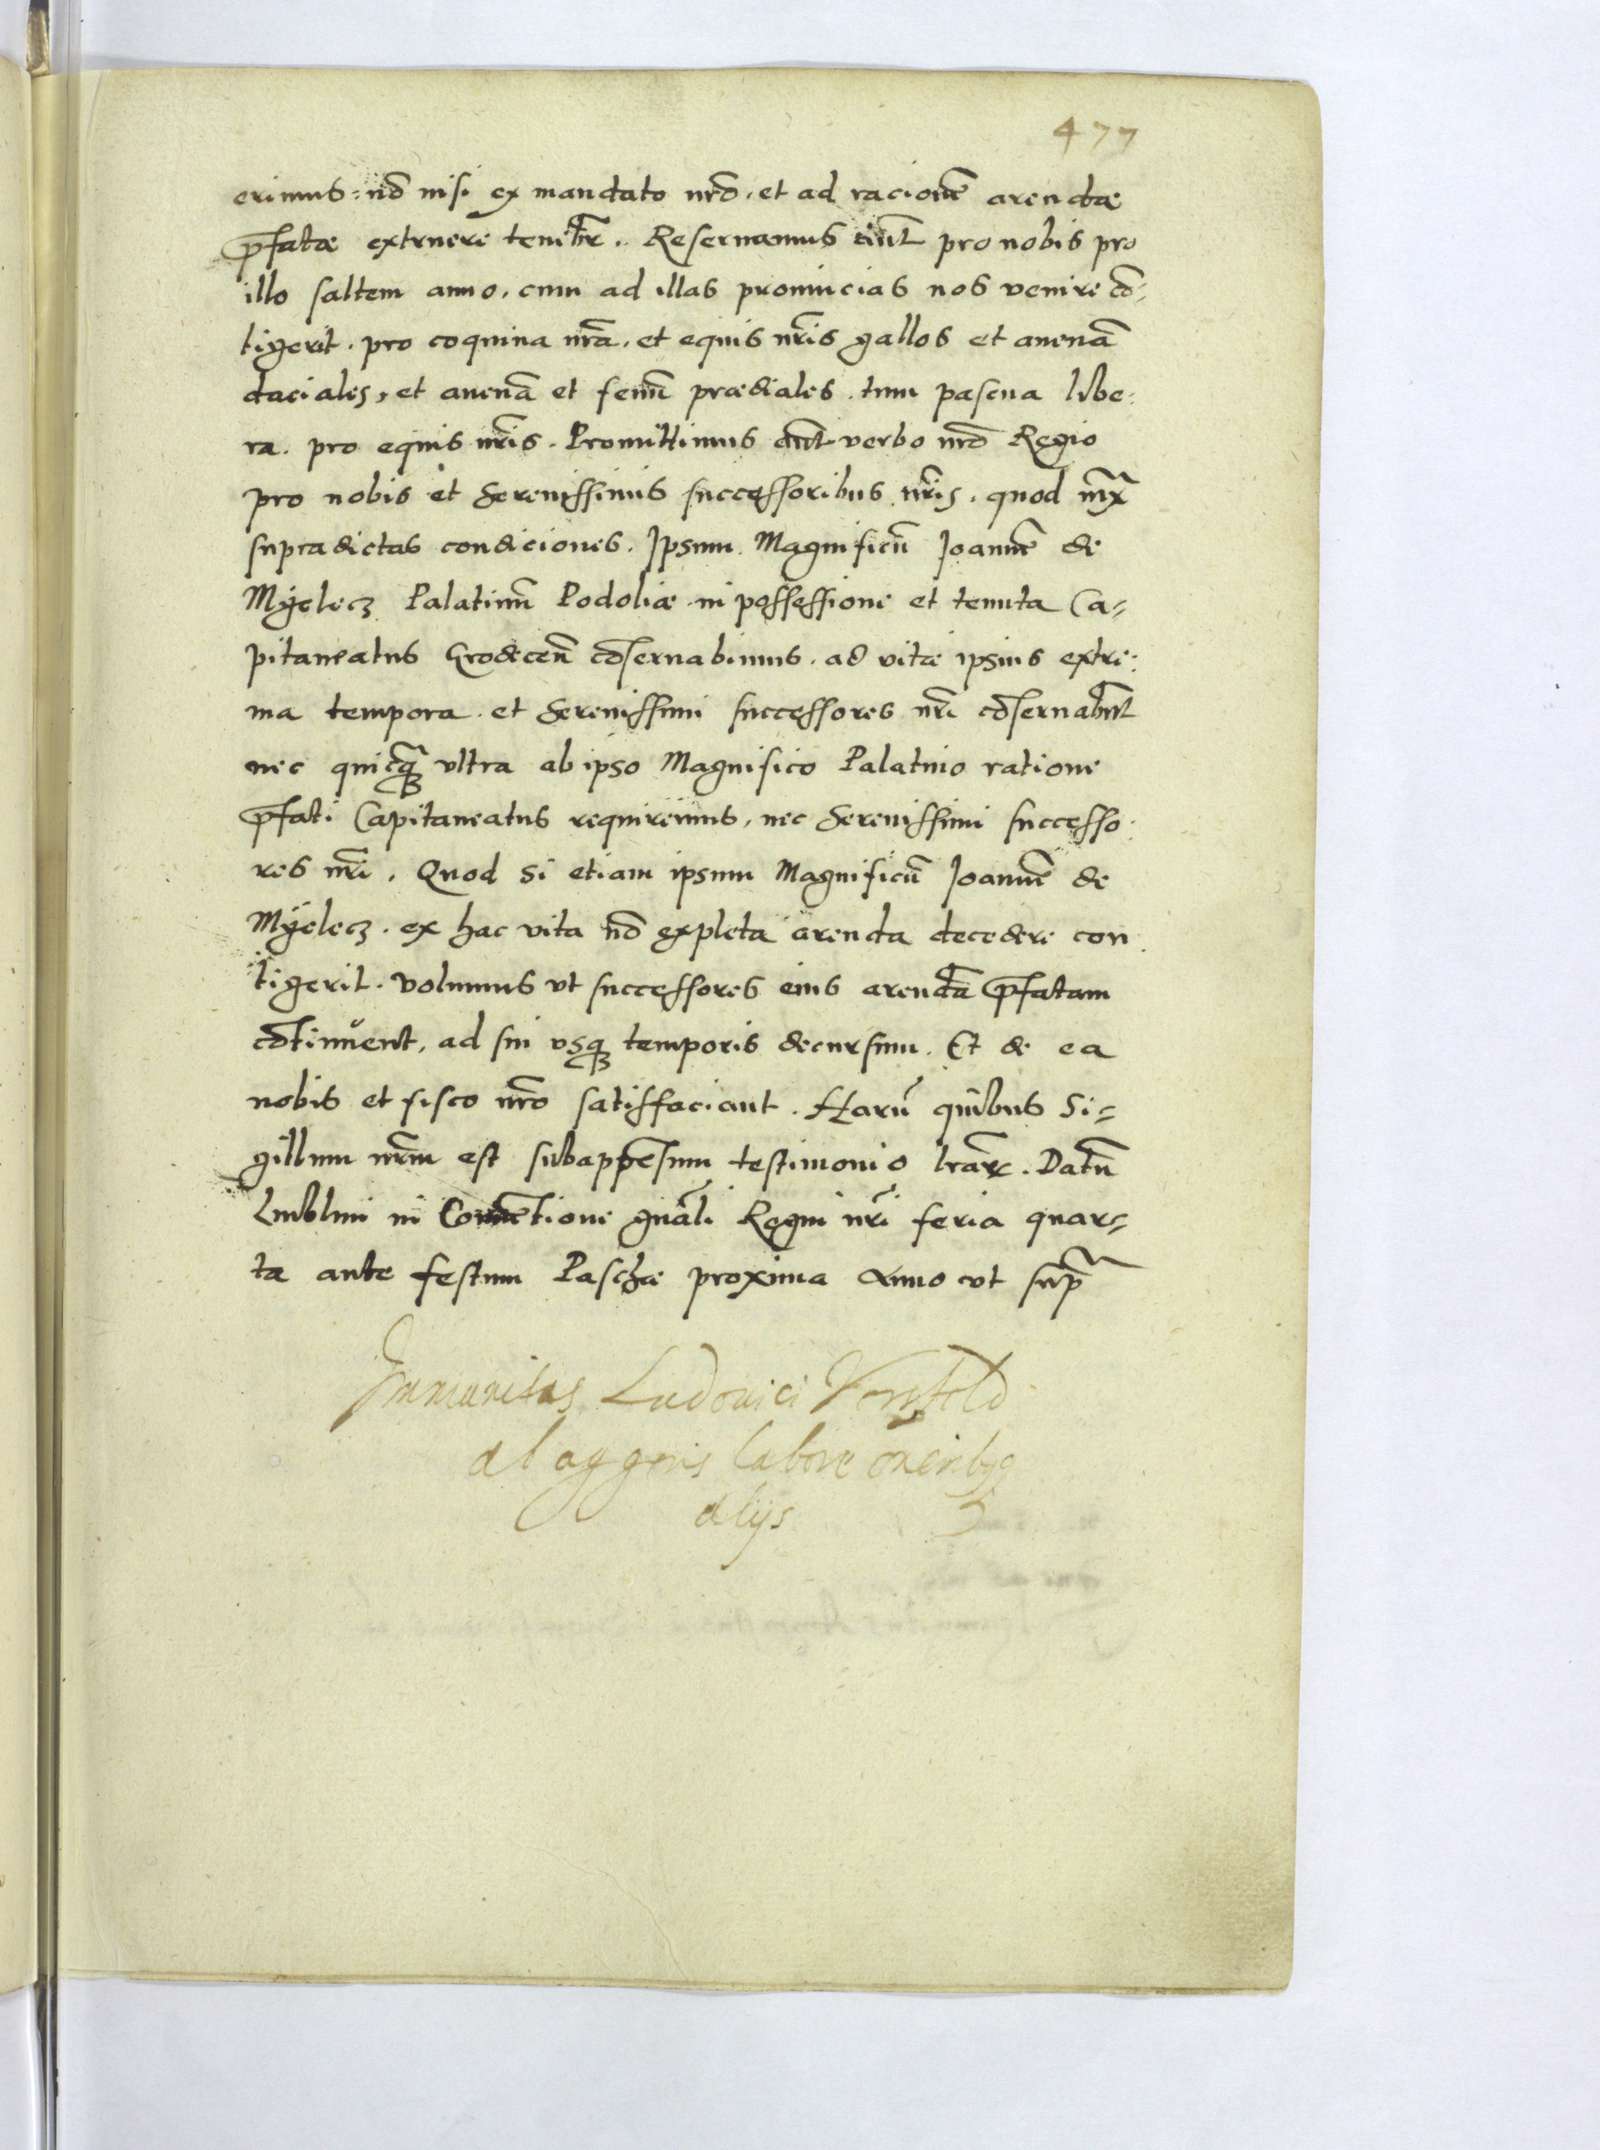 477
erimus. nō nisi ex mandato nrō. et ad racionē arendæ
p̄fatæ extruere tenebr̄. Reseruamus aūt pro nobis pro
illo saltem anno, cum ad illas prouincias nos venire cō-
tigerit. pro coquina nrā. et equis nrīs gallos et auenā
daciales, et auenā et fenū prædiales. tum pascua libe-
ra. pro equis nrīs. Promittimus aūt verbo nrō Regio
pro nobis et Serenissimis successoribus nrīs. quod iux̄
supradictas condiciones. Ipsum Magnificū Joannē de
Myelecz Palatinū Podoliæ in possessione et tenuta Ca-
pitaneatus Grodecen̄ cōseruabimus. ad vitæ ipsius extre-
ma tempora. et Serenissimi successores nrī cōseruabūt
nec quicq̄ vltra ab ipso Magnifico Palatino ratione
p̄fati Capitaneatus requiremus, nec Serenissimi successo-
res nrī. Quod si etiam ipsum Magnificū Joannē de
Myelecz. ex hac vita nō expleta arenda decedere con
tigerit. volumus vt successores eius arendā p̄fatam
cōtinuent, ad sui vsq; temporis decursum. Et de ea
nobis et fisco nrō satisfaciant. Harū quibus Si-
gillum nrm̄ est subappēsum testimonio lrār̄. Datū
Lublini in Conuētione gnāli Regni nrī feria quar-
ta ante festum Paschæ proxima Anno vt sup̄
Immunitas Ludouici
ab aggeris labore
alijs